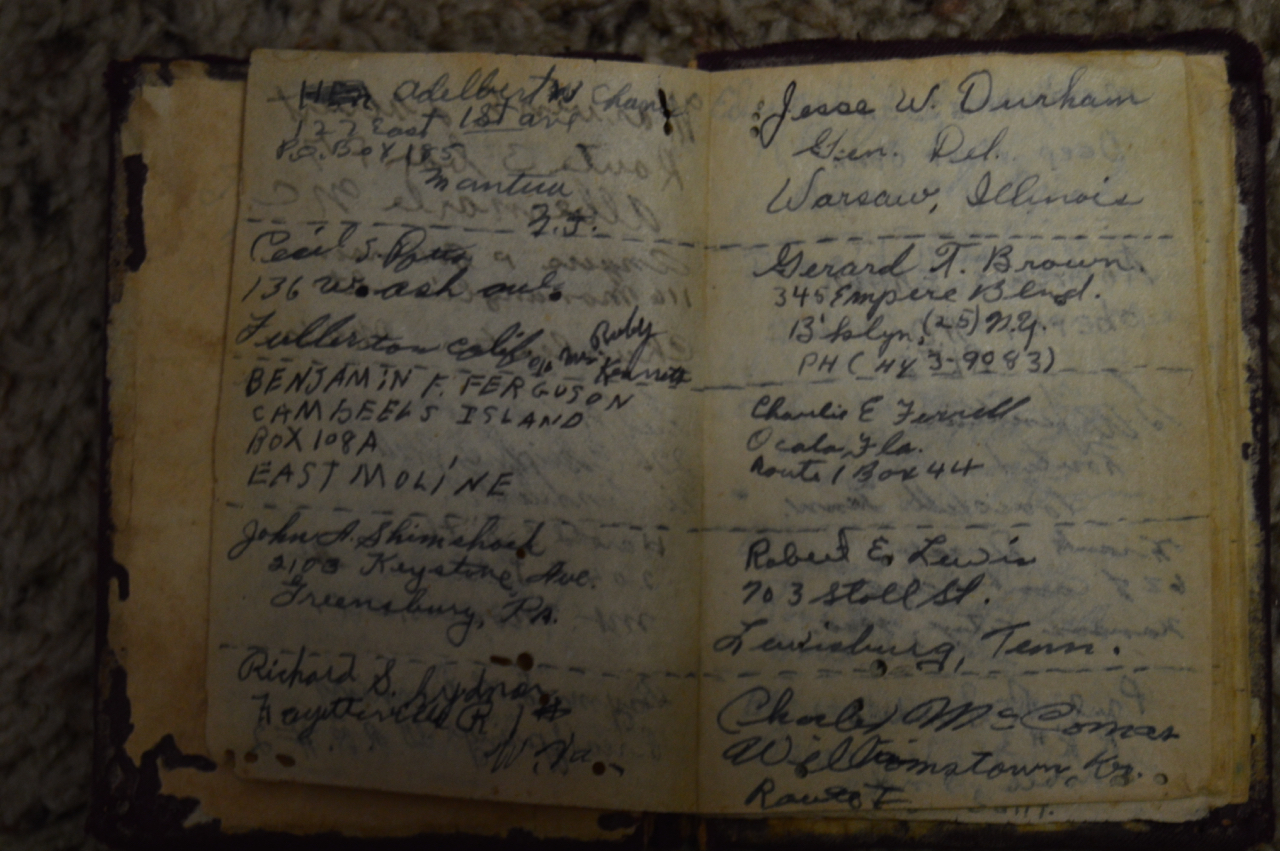 Adelbert W Chan
127 East 1st ave
P.O. Box 185
Mantua
N.J.
Cecil S
136 W. ash ave.
Fullerton Calif % Mrs Ruby Kennett
BENJAMIN F. FERGUSON
CAMBEELS ISLAND
BOX 108A
EAST MOLINE
John A.
2103 Keystone Ave.
Greensburg, Pa.
Richard S.
Fayetteville (R 1
W. Va.
Jesse W. Durham
Gen. Del.
Warsaw, Illinois
Gerard T. Brown.
345 Empire Blvd.
B'klyn, (25) N.Y.
PH (HY 3-9083)
Charlie E Ferrell
Ocala, Fla.
Route 1 Box 44
Robert E. Lewis
703 Stoll St.
Lewisburg, Tenn.
Charles McComas
Williamstown, Ky.
Route I